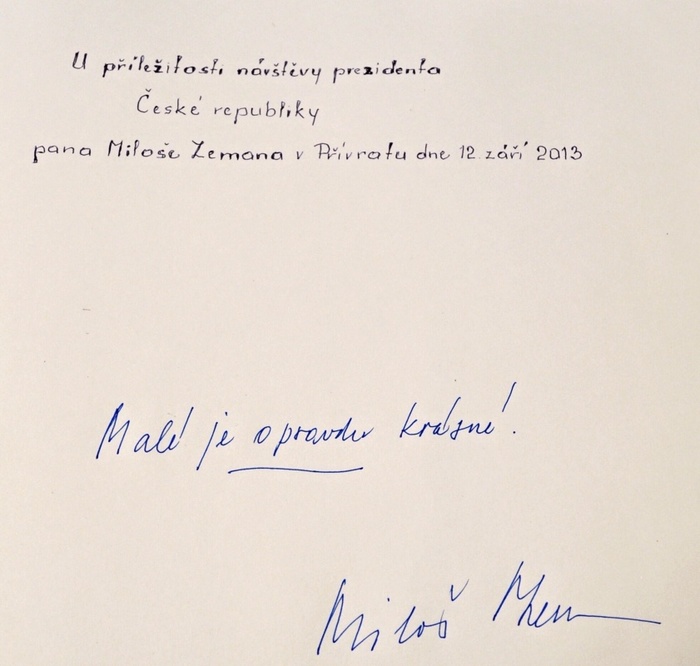 U příležitosti návštěvy prezidenta
České republiky
pana Miloše Zemana v Přívratu dne 12. září 2013
Malé je opravdu krásné!
Miloš Zeman